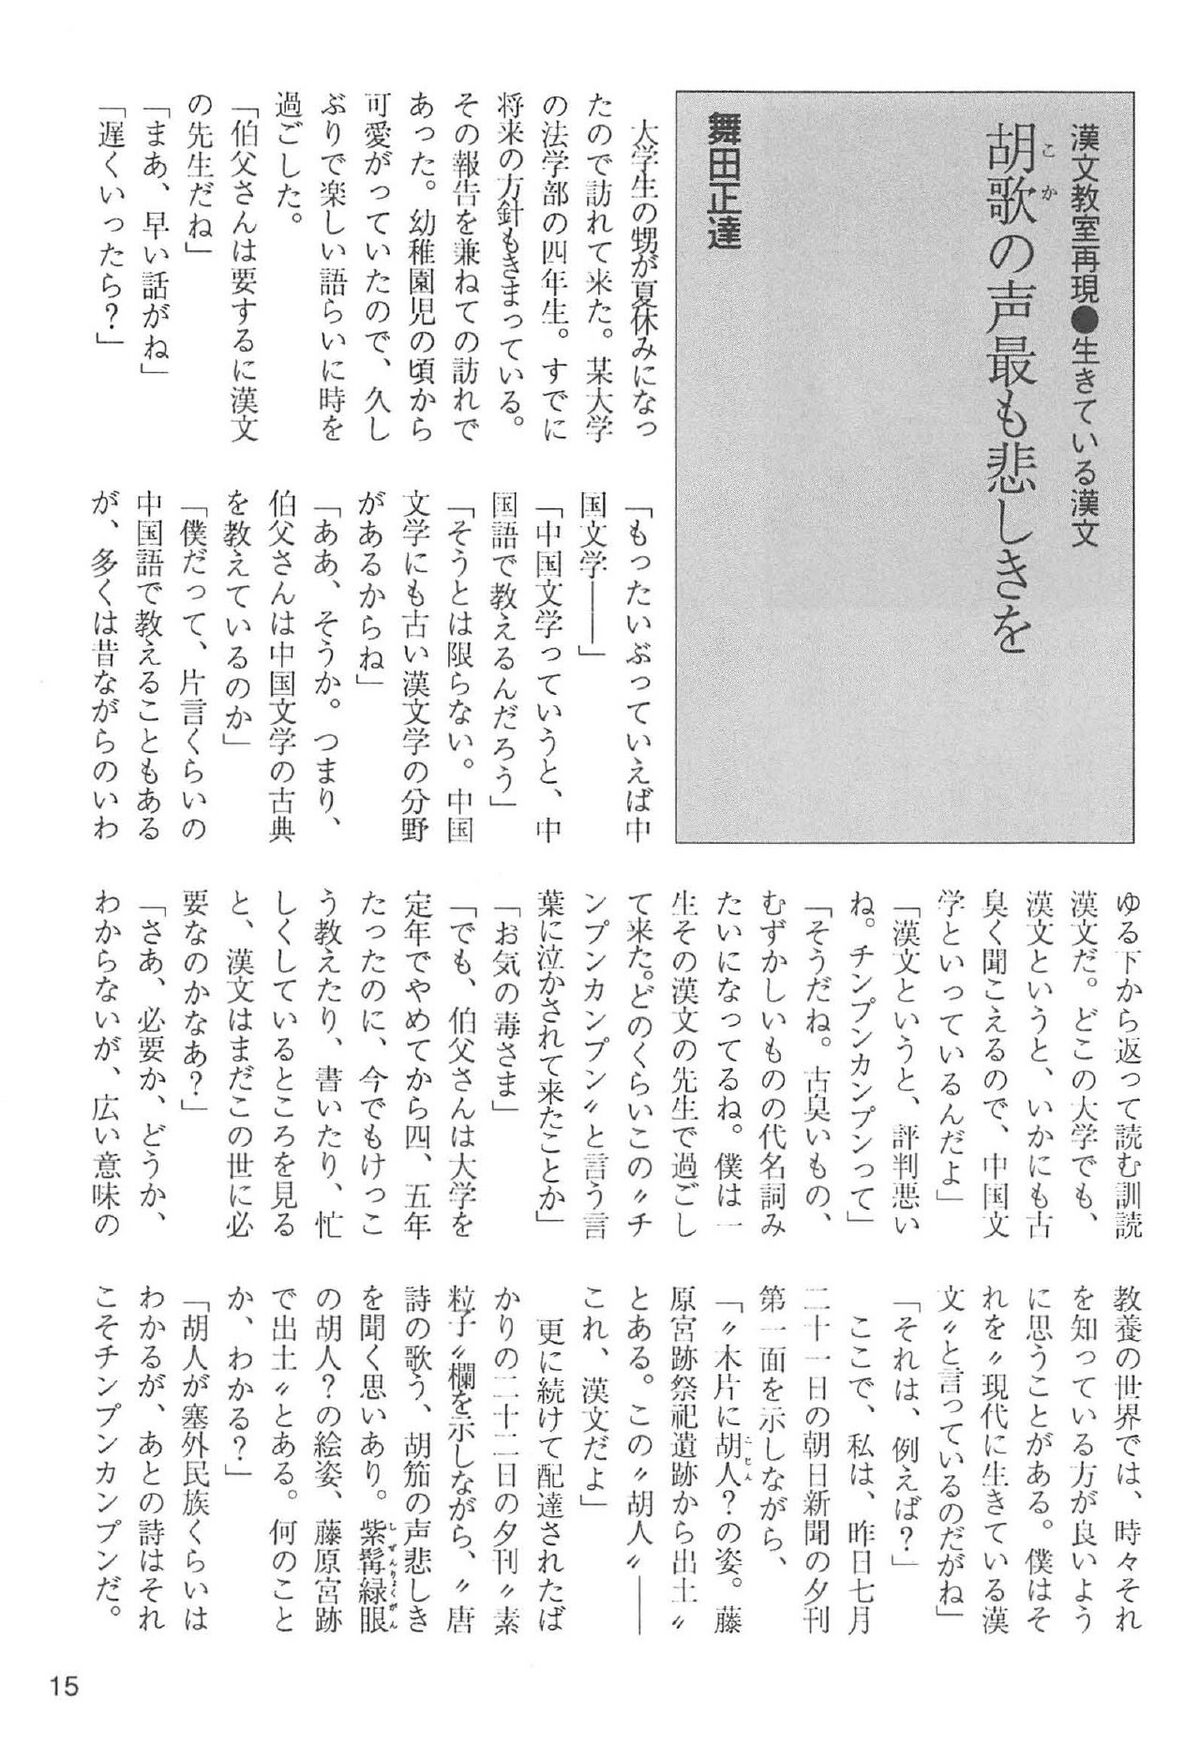 漢文教室再現●生きている漢文
胡歌の声最も悲しきを
こか
舞田正達
大学生の甥が夏休みになっ
たので訪れて来た。某大学
の法学部の四年生。すでに
将来の方針もきまっている。
その報告を兼ねての訪れで
あった。幼稚園児の頃から
可愛がっていたので、久し
ぶりで楽しい語らいに時を
過ごした。
「伯父さんは要するに漢文
の先生だね」
「まあ、早い話がね」
「遅くいったら？」
「もったいぶっていえば中
国文学――」
「中国文学っていうと、中
国語で教えるんだろう」
「そうとは限らない。中国
文学にも古い漢文学の分野
があるからね」
「ああ、そうか。つまり、
伯父さんは中国文学の古典
を教えているのか」
「僕だって、片言くらいの
中国語で教えることもある
が、多くは昔ながらのいわ
ゆる下から返って読む訓読
漢文だ。どこの大学でも、
漢文というと、いかにも古
臭く聞こえるので、中国文
学といっているんだよ」
「漢文というと、評判悪い
ね。チンプンカンプンって」
「そうだね。古臭いもの、
むずかしいものの代名詞み
たいになってるね。僕は一
生その漢文の先生で過ごし
て来た。どのくらいこの〝チ
ンプンカンプン〟と言う言
葉に泣かされて来たことか」
「お気の毒さま」
「でも、伯父さんは大学を
定年でやめてから四、五年
たったのに、今でもけっこ
う教えたり、書いたり、忙
しくしているところを見る
と、漢文はまだこの世に必
要なのかなあ？」
「さあ、必要か、どうか、
わからないが、広い意味の
教養の世界では、時々それ
を知っている方が良いよう
に思うことがある。僕はそ
れを〝現代に生きている漢
文〟と言っているのだがね」
「それは、例えば？」
ここで、私は、昨日七月
二十一日の朝日新聞の夕刊
第一面を示しながら、
「〝木片に胡人？の姿。藤
こじん
原宮跡祭祀遺跡から出土〟
とある。この〝胡人〟――
これ、漢文だよ」
更に続けて配達されたば
かりの二十二日の夕刊〝素
粒子〟欄を示しながら、〝唐
詩の歌う、胡笳の声悲しき
を聞く思いあり。紫髯緑眼
しぜんりょくがん
の胡人？の絵姿、藤原宮跡
で出土〟とある。何のこと
か、わかる？」
「胡人が塞外民族くらいは
わかるが、あとの詩はそれ
こそチンプンカンプンだ。
15